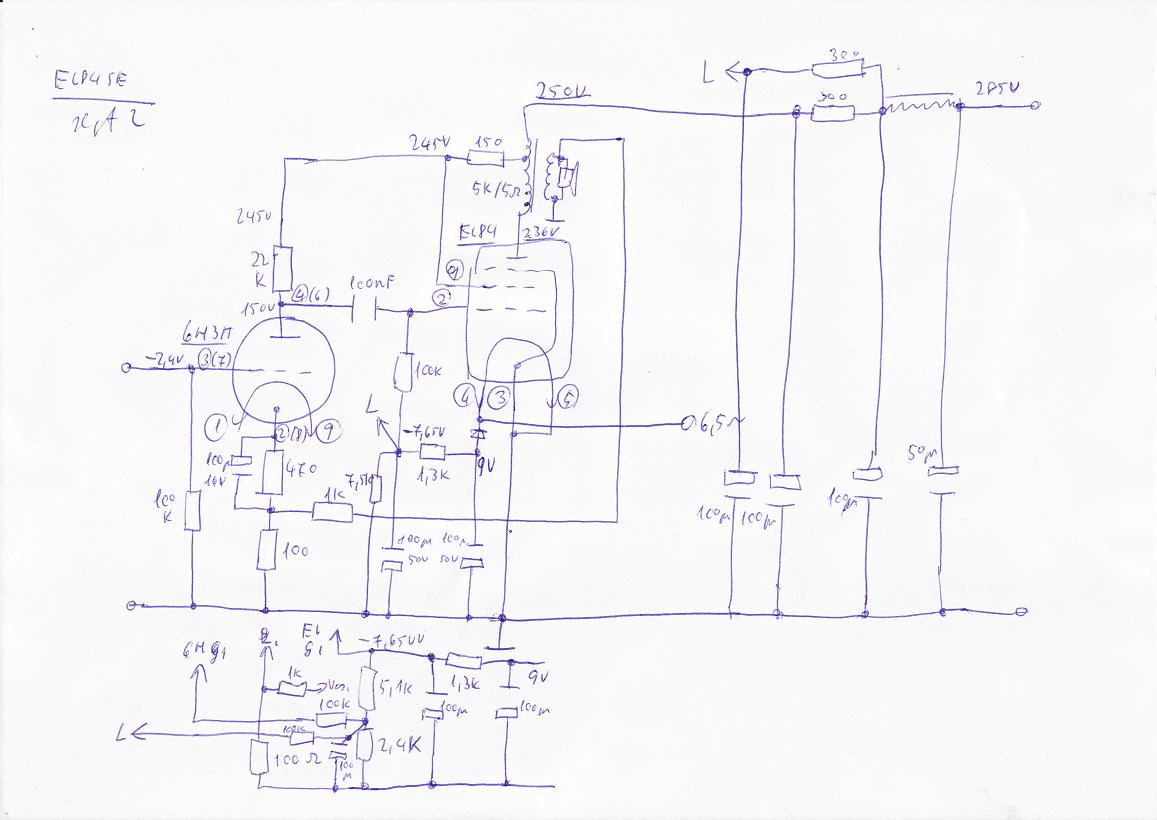 EL84SE
L
300
300
285V
250V
245V
150
5K/5Ω
245V
EL84
236V
22
K
100nF
④(6)
⑨
②
150V
6Н3П
-2,4V
③(7)
100K
④
③
⑤
L
①
②(8)
⑨
-7,65V
6,5~
100µ
16V
470
7,5K
1,3K
9V
50µ
1K
100
K
100
100µ
50V
100µ
50V
100µ
100µ
100µ
EL
g1
-7,65V
6H g1
1K
5,1K
1,3K
9V
100K
100µ
100µ
L
100K
100Ω
100
µ
2,4K